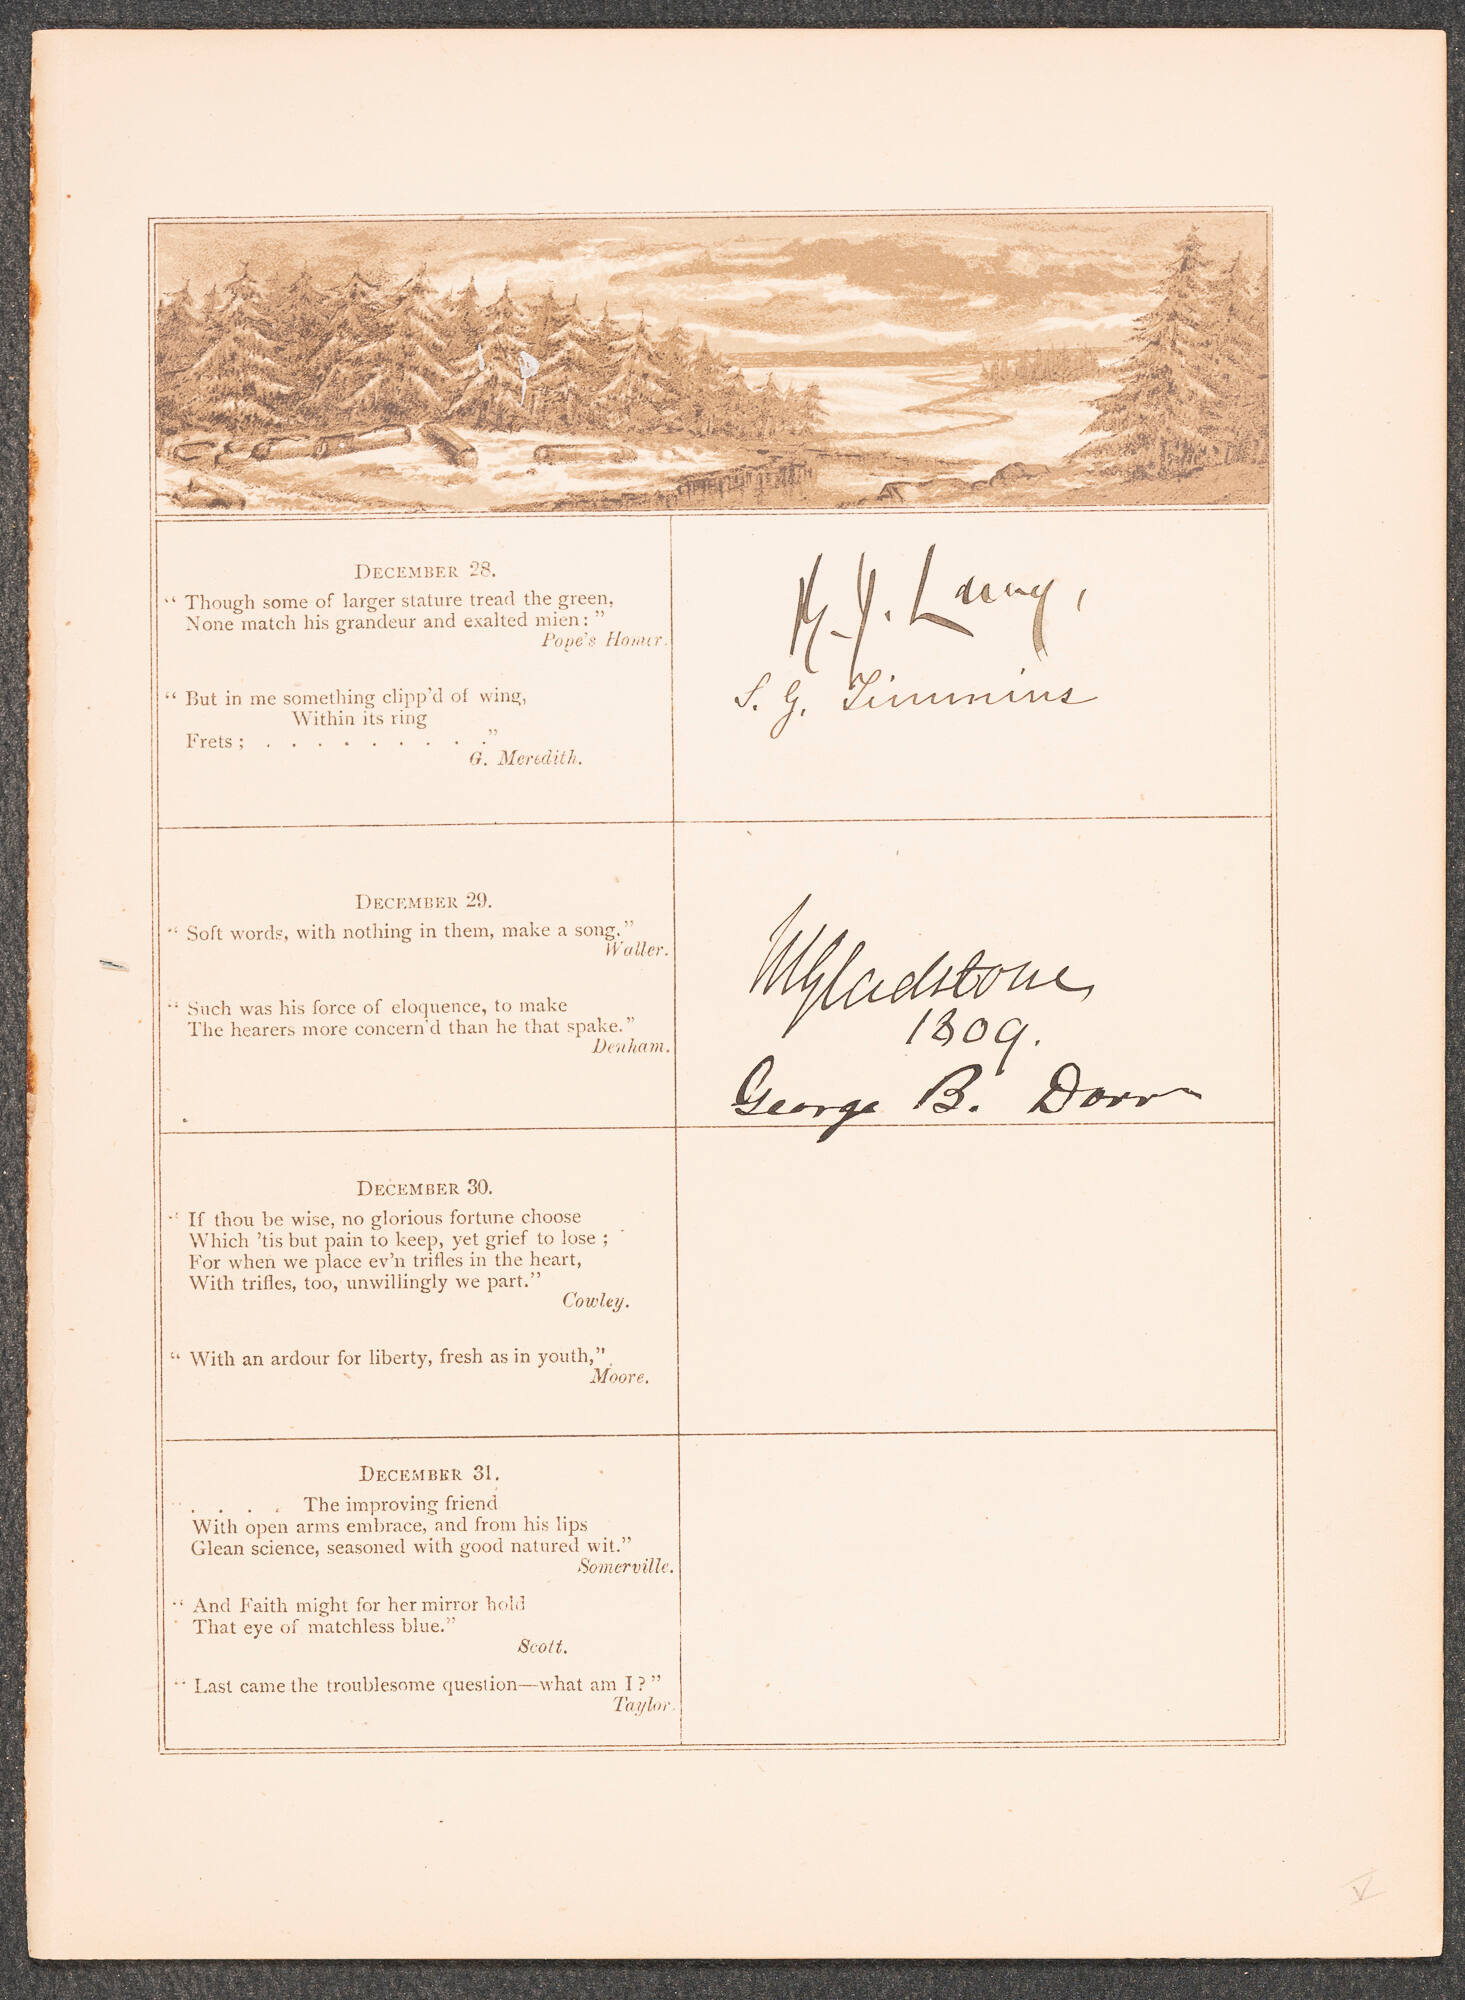 DECEMBER 28.
“ Though some of larger stature tread the green,
None match his grandeur and exalted mien: ”
Pope's Homer.
“ But in me something clipp'd of wing,
Within its ring
Frets ; . . . . . . . . . ”
G. Meredith.
S. G. Timmins
DECEMBER 29.
“ Soft words, with nothing in them, make a song.”
Waller.
“ Such was his force of eloquence, to make
The hearers more concern'd than he that spake.”
Denham.
WGladstone
1809.
George B. Dorr
DECEMBER 30.
“ If thou be wise, no glorious fortune choose
Which 'tis but pain to keep, yet grief to lose ;
For when we place ev'n trifles in the heart,
With trifles, too, unwillingly we part.”
Cowley.
“ With an ardour for liberty, fresh as in youth,”
Moore.
DECEMBER 31.
“ . . . . The improving friend
With open arms embrace, and from his lips
Glean science, seasoned with good natured wit.”
Somerville.
“ And Faith might for her mirror hold
That eye of matchless blue.”
Scott.
“ Last came the troublesome question—what am I ? ”
Taylor.
V